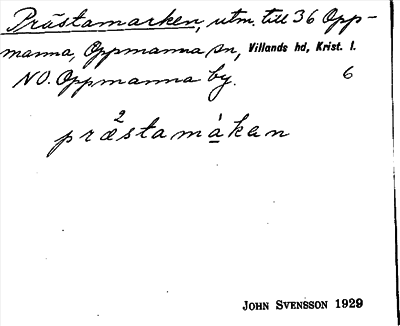 Prästamarken, utm. till 36 Opp-
manna, Oppmanna sn, Villands hd, Krist. l.
NO. Oppmanna by. 6
2
præstamàkan
JOHN SVENSSON 1929